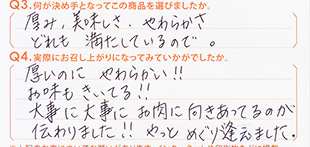 Q3.何が決め手となってこの商品を選びましたか。
厚み、美味しさ、やわらかさ
どれも 満たしているので。
Q4.実際にお召し上がりになってみていかがでしたか。
厚いのに やわらかい!!
お味も きいてる!!
大事に大事に お肉に向きあってるのが
伝わりました!! やっと めぐり逢えました。